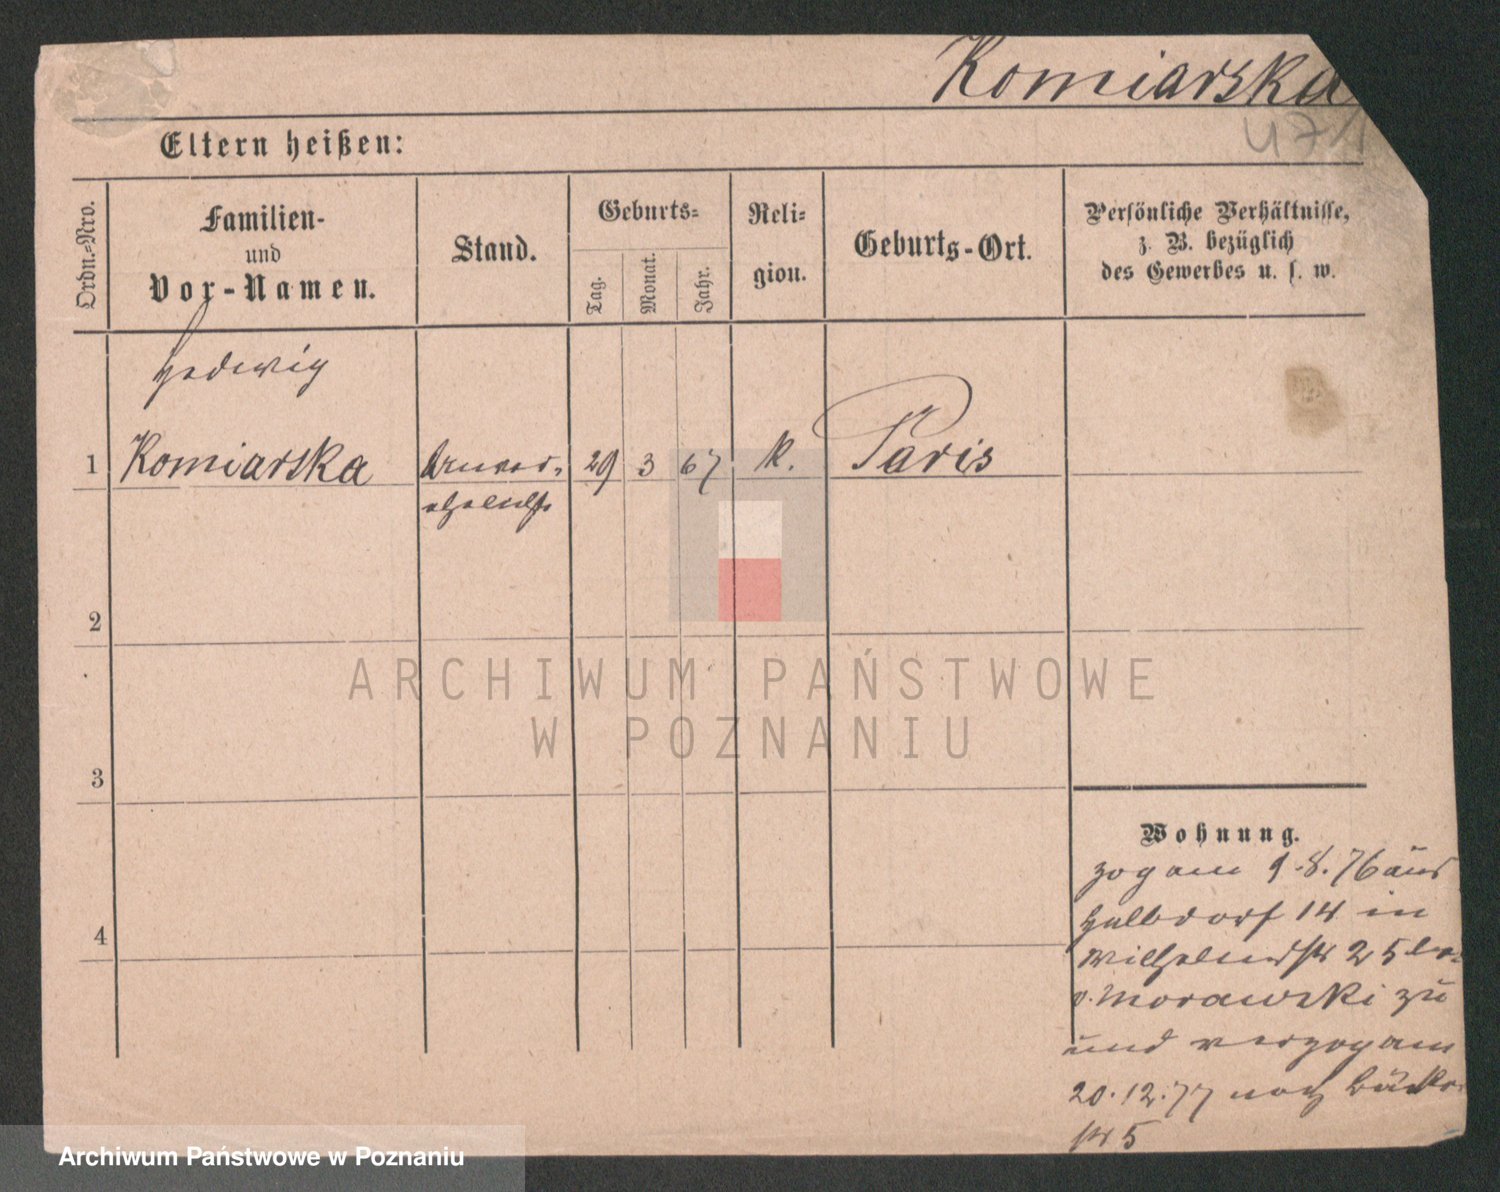 Komiarska
471
Eltern heißen:
Ordn.=Nro.
Familien-
und
Vor-Namen.
Stand.
Geburts=
Tag.
Monat.
Jahr.
Reli=
gion.
Geburts-Ort.
Persönliche Verhältnisse,
z. B. bezüglich
des Gewerbes u. s. w.
Hedwig
1 Komiarska 29 3 67 k. Paris
2
3
4
Wohnung.
zog am 9.8.76 aus
Halbdorf 14 in
Wilhelmstr 25
v. Morawski zu
und verzog am
20.12.77 nach Bäcker
str 5
ARCHIWUM PAŃSTWOWE
W POZNANIU
Archiwum Państwowe w Poznaniu